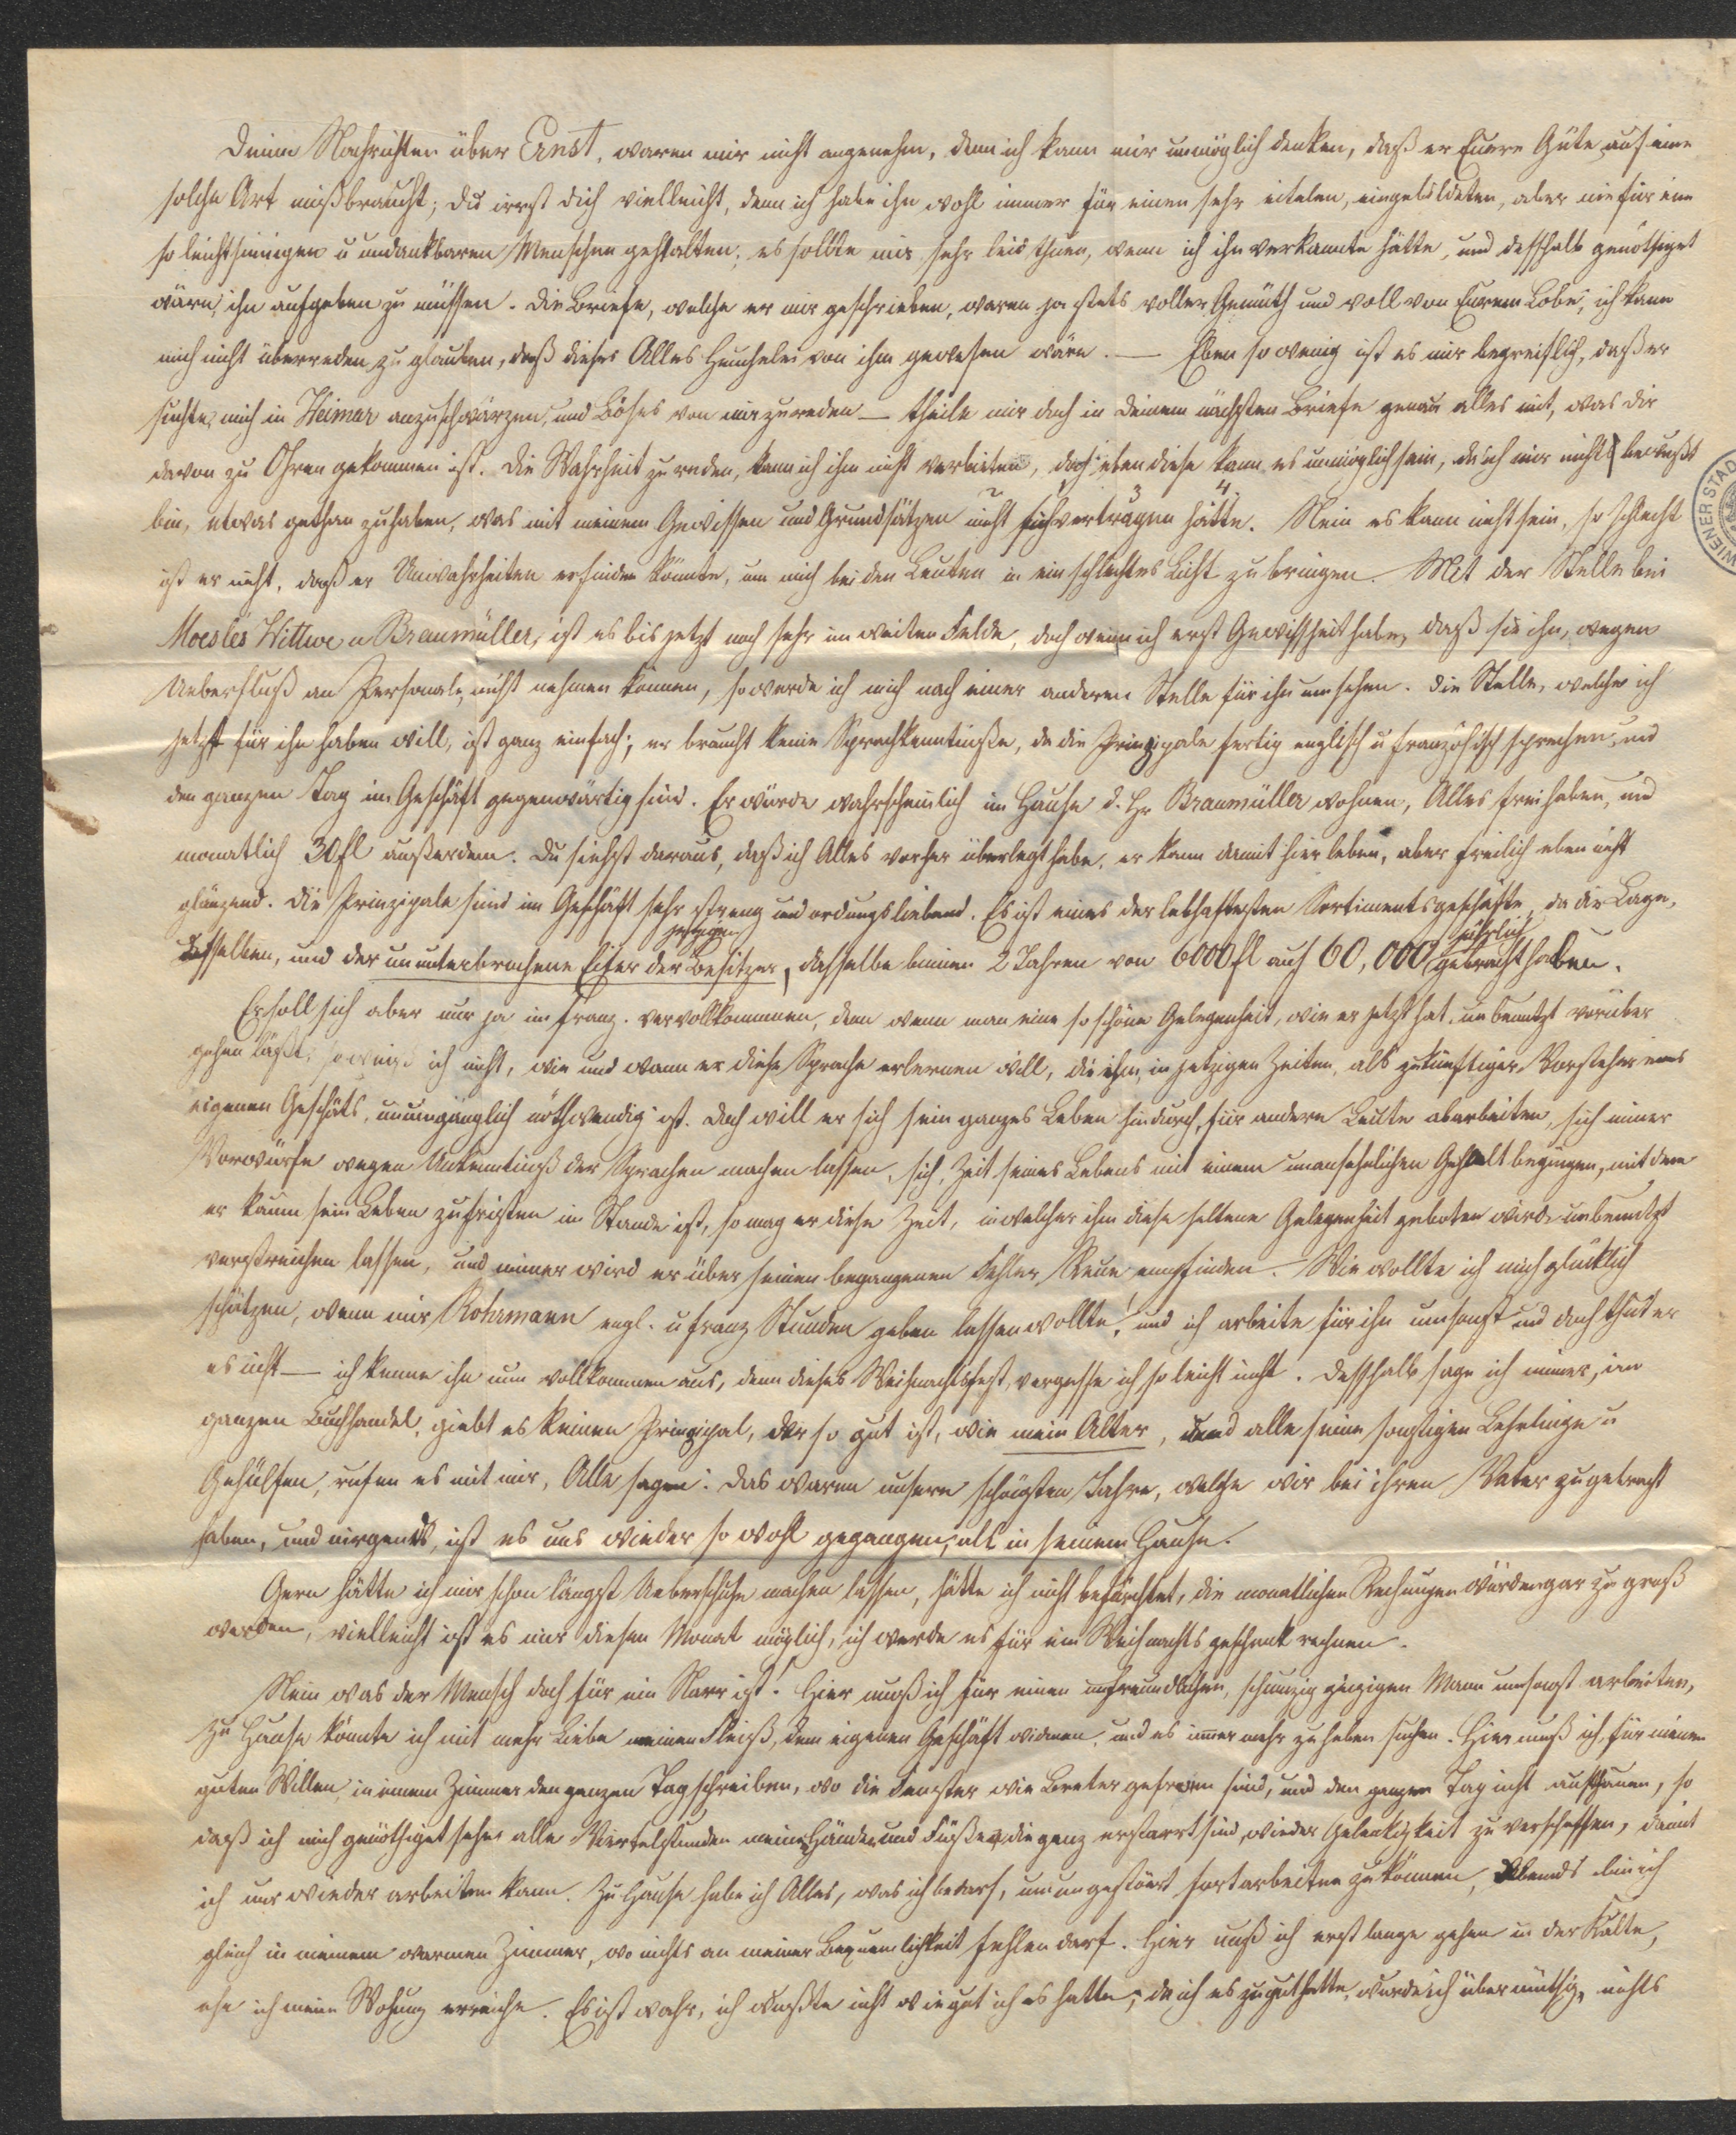 Deine Nachrichten über Ernst, waren mir nicht angenehm, denn ich kann mir unmöglich denken, daß er Euere Güte auf eine
solche Art mißbraucht; Du irrst dich vielleicht, denn ich habe ihn wohl immer für einen sehr eitelen, eingebildeten, aber nie für eine
so leichtsinnigen u undankbaren Menschen gehalten; es sollte mir sehr leid thuen, wenn ich ihn verkannte hätte, und deßhalb genöthiget
wäre, ihn aufgeben zu müssen. Die Briefe, welche er mir geschrieben, waren ja stets voller Gemüth und voll von Eurem Lobe, ich kann
mich nicht überreden zu glauben, daß dieses Alles Heuchelei von ihm gewesen wäre. — Eben so wenig ist es mir begreiflich, daß er
suchte, mich in Weimar anzuschwärzen, und Böses von mir zu reden — theile mir doch in Deinem nächsten Briefe genau alles mit, was dir
davon zu Ohren gekommen ist. Die Wahrheit zu reden, kann ich ihm nicht verbieten, doch eben diese kann es unmöglich sein, da ich mir nichts bewußt
bin, etwas gethan zu haben, was mit meinem Gewissen und Grundsätzen nicht sich vertragen hätte. Nein es kann nicht sein, so schlecht
ist er nicht, daß er Unwahrheiten erfinden könnte, um mich bei den Leuten in ein schlechtes Licht zu bringen. Mit der Stelle bei
Moesles Wittwe u Braumüller, ist es bis jetzt noch sehr im weiten Felde, doch wenn ich erst Gewißheit habe, daß sie ihn, wegen
Ueberfluß an Personale, nicht nehmen können, so werde ich mich nach einer anderen Stelle für ihn umsehen. Die Stelle, welche ich
jetzt für ihn haben will, ist ganz einfach; er braucht keine Sprachkenntniße, da die Prinzipale fertig englisch u französisch sprechen, und
den ganzen Tag im Geschäft gegenwärtig sind. Er würde wahrscheinlich im Hause d. Hr Braumüller wohnen, Alles frei haben, und
monatlich 30 fl außerdem. Du siehst daraus, daß ich Alles vorher überlegt habe, er kann damit hier leben, aber freilich eben nicht
glänzend. Die Prinzipale sind im Geschäft sehr streng und ordungsliebend. Es ist eines der lebhaftesten Sortimentsgeschäfte, da die Lage,
jetzigen jährlich
desselben, und der ununterbrochene Eifer der Besitzer, dasselbe binnen 2 Jahren von 6000 fl auf 60,000 gebracht haben.
Er soll sich aber nur ja im franz. vervollkommnen, denn wenn man eine so schöne Gelegenheit, wie er jetzt hat, unbenutzt vorüber
gehen läßt, so weiß ich nicht, wie und wann er diese Sprache erlernen will, die ihm, in jetzigen Zeiten, als zukünftiger Vorsteher eines
eigenen Geschäfts, unumgänglich nothwendig ist. Doch will er sich sein ganzes Leben hindurch, für andere Leute abarbeiten, sich immer
Vorwürfe wegen Unkenntniß der Sprachen machen lassen, sich, Zeit seines Lebens mit einem unansehnlichen Gehalt begnügen, mit dem
er kaum sein Leben zu fristen im Stande ist, so mag er diese Zeit, in welcher ihm diese seltene Gelegenheit geboten wird, unbenutzt
verstreichen lassen, und immer wird er über seinen begangenen Fehler, Reue empfinden. Wie wollte ich mich glücklich
schätzen, wenn mir Rohrmann engl. u franz Stunden geben lassen wollte! und ich arbeite für ihn umsonst und doch thut er
es nicht — ich kenne ihn nun vollkommen aus, denn dieses Weihnachtsfest, vergesse ich so leicht nicht. Deßhalb sage ich immer, im
ganzen Buchhandel, giebt es keinen Prinzipal, der so gut ist, wie mein Alter, und alle seine sonstigen Lehrlinge u
Gehülfen, rufen es mit mir, Alle sagen: Das waren unsere schönsten Jahre, welche wir bei ihren Vater zugebracht
haben, und nirgends, ist es uns wieder so wohl gegangen, als in seinem Hause.
Gern hätte ich mir schon längst Ueberschuhe machen lassen, hätte ich nicht befürchtet, die monatlichen Rechnungen würden gar zu groß
werden, vielleicht ist es mir diesen Monat möglich, ich werde es für ein Weihnachtsgeschenk rechnen.
Nein was der Mensch doch für ein Narr ist. Hier muß ich für einen unfreundlichen, schmuzig geizigen Mann umsonst arbeiten,
zu Hause könnte ich mit mehr Liebe meinen Fleiß, dem eigenen Geschäft widmen, und es immer mehr zu heben suchen. Hier muß ich, für meinen
guten Willen, in einem Zimmer den ganzen Tag schreiben, wo die Fenster wie Breter gefroren sind, und den ganzen Tag nicht aufthauen, so
daß ich mich genöthiget sehe, alle Viertelstunden meine Hände und Füße, die ganz erstarrt sind, wieder Gelenkigkeit zu verschaffen, damit
ich nur wieder arbeiten kann. Zu Hause habe ich Alles, was ich bedarf, um ungestört fortarbeiten zu können, Abends bin ich
gleich in meinem warmen Zimmer, wo nichts an meiner Bequemlichkeit fehlen darf. Hier muß ich erst lange gehen in der Kälte,
ehe ich meine Wohnung erreiche. Es ist wahr, ich wußte nicht wie gut ich es hatte, da ich es zu gut hatte, wurde ich übermüthig, nichts